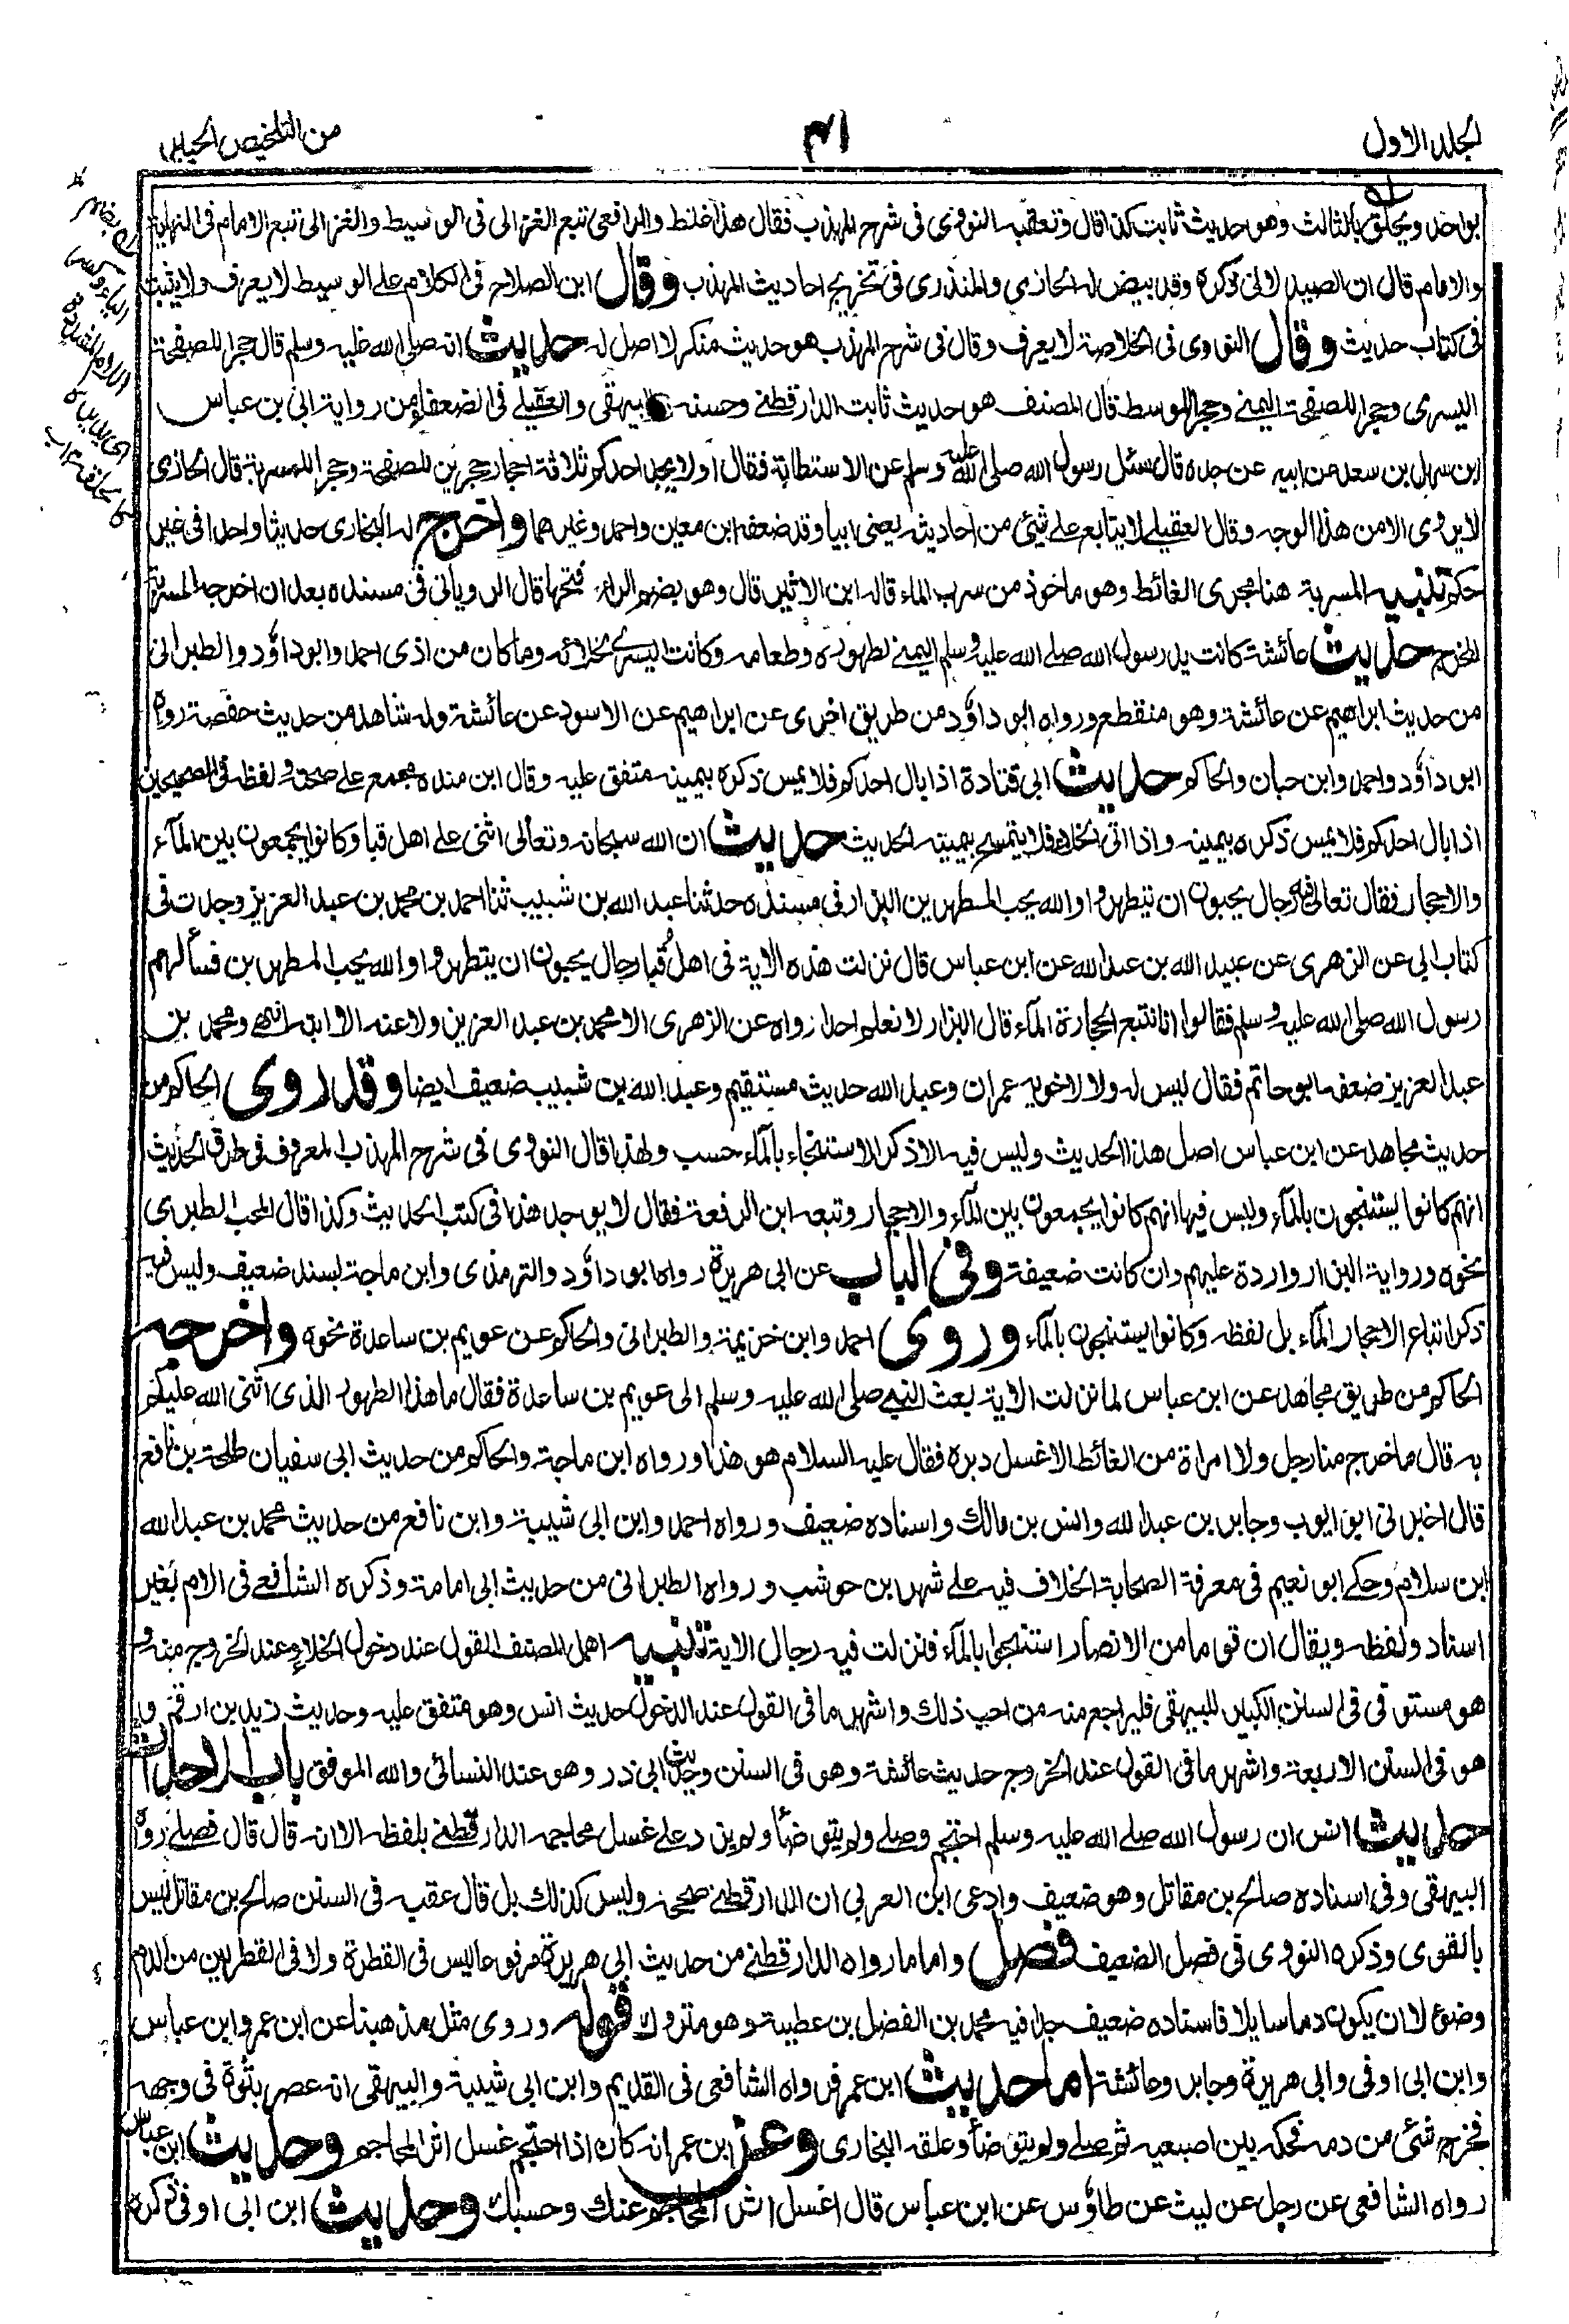 المجلد الاول
٤١
من التلخيص الحبير
بواحد ويحلق بالثالث وهو حديث ثابت كذا قال وتعقبه النووي فى شرح المهذب فقال هذا غلط والرافعى تبع الغزالى فى الوسيط والغزالى تبع الامام فى النهاية
والامام قال ان الصيدلانى ذكره وقد بيض له الحازمى والمنذرى فى تخريج احاديث المهذب وقال ابن الصلاح فى الكلام على الوسيط لا يعرف ولا يثبت
فى كتاب حديث وقال النووى فى الخلاصة لا يعرف وقال فى شرح المهذب هو حديث منكر لا اصل له حديث انه صلى الله عليه وسلم قال حجر للصفحة
اليسرى وحجر للصفحة اليمنى وحجر للوسط قال المصنف هو حديث ثابت الدارقطنى وحسنه البيهقى والعقيلى فى الضعفاء من رواية ابى بن عباس
ابن سهل بن سعد عن ابيه عن جده قال سئل رسول الله صلى الله عليه وسلم عن الاستطابة فقال اولا يجد احدكم ثلاثة احجار حجرين للصفحة وحجرا للمسربة قال الحازمى
لا يروى الا من هذا الوجه وقال العقيلى لا يتابع على شئ من احاديثه يعنى ابيا وقد ضعفه ابن معين واحمد وغيرهما واخرج له البخارى حديثا واحدا فى غير
حكم تنبيه المسربة هنا مجرى الغائط وهو ماخوذ من سرب الماء قاله ابن الاثير قال وهو بضم الراء وفتحها قال الرويانى فى مسنده بعد ان اخرجه المسربة
المخرج حديث عائشة كانت يد رسول الله صلى الله عليه وسلم اليمنى لطهوره وطعامه وكانت اليسرى لخلائه وما كان من اذى احمد وابو داؤد والطبرانى
من حديث ابراهيم عن عائشة وهو منقطع ورواه ابو داؤد من طريق اخرى عن ابراهيم عن الاسود عن عائشة وله شاهد من حديث حفصة رواه
ابو داؤد واحمد وابن حبان والحاكم حديث ابى قتادة اذا بال احدكم فلا يمس ذكره بيمينه متفق عليه وقال ابن منده مجمع على صحته ولفظه فى الصحيحين
اذا بال احدكم فلا يمس ذكره بيمينه واذا اتى الخلاء فلا يتمسح بيمينه الحديث حديث ان الله سبحانه وتعالى اثنى على اهل قبا وكانوا يجمعون بين المآء
والاحجار فقال تعالى فيه رجال يحبون ان يتطهروا والله يحب المطهرين البزار فى مسنده حدثنا عبد الله بن شبيب ثنا احمد بن محمد بن عبد العزيز وجدت فى
كتاب ابى عن الزهرى عن عبيد الله بن عبد الله عن ابن عباس قال نزلت هذه الاية فى اهل قُبا رجال يحبون ان يتطهروا والله يحب المطهرين فسألهم
رسول الله صلى الله عليه وسلم فقالوا انا نتبع الحجارة المآء قال البزار لا نعلم احدا رواه عن الزهرى الا محمد بن عبد العزيز ولا عنه الا ابنه انتهى ومحمد بن
عبد العزيز ضعفه ابو حاتم فقال ليس له ولا لاخويه عمران وعبد الله حديث مستقيم وعبد الله بن شبيب ضعيف ايضا وقد روى الحاكم من
حديث مجاهد عن ابن عباس اصل هذا الحديث وليس فيه الا ذكر الاستنجاء بالمآء حسب ولهذا قال النووى فى شرح المهذب المعروف فى طرق الحديث
انهم كانوا يستنجون بالمآء وليس فيها انهم كانوا يجمعون بين المآء والاحجار وتبعه ابن الرفعة فقال لا يوجد هذا فى كتب الحديث وكذا قال المحب الطبرى
نحوه ورواية البزار واردة عليهم وان كانت ضعيفة وفى الباب عن ابى هريرة رواه ابو داؤد والترمذى وابن ماجة بسند ضعيف وليس فيه
ذكر اتباع الاحجار المآء بل لفظه وكانوا يستنجون بالمآء وروى احمد وابن خزيمة والطبرانى والحاكم عن عويم بن ساعدة نحوه واخرجه
الحاكم من طريق مجاهد عن ابن عباس لما نزلت الاية بعث النبى صلى الله عليه وسلم الى عويم بن ساعدة فقال ما هذا الطهور الذى اثنى الله عليكم
به قال ما خرج منا رجل ولا امراة من الغائط الا غسل دبره فقال عليه السلام هو هذا ورواه ابن ماجة والحاكم من حديث ابى سفيان طلحة بن نافع
قال اخبرنى ابو ايوب وجابر بن عبد الله وانس بن مالك واسناده ضعيف ورواه احمد وابن ابى شيبة وابن نافع من حديث محمد بن عبد الله
ابن سلام وحكى ابو نعيم فى معرفة الصحابة الخلاف فيه على شهر بن حوشب ورواه الطبرانى من حديث ابى امامة وذكره الشافعى فى الام بغير
اسناد ولفظه ويقال ان قوما من الانصار استنجوا بالمآء فنزلت فيه رجال الاية تنبيه اهمل المصنف القول عند دخول الخلاء وعند الخروج منه و
هو مستوفى فى السنن الكبير للبيهقى فليراجع منه من احب ذلك واشهر ما فى القول عند الدخول حديث انس وهو متفق عليه وحديث زيد بن ارقم و
هو فى السنن الاربعة واشهر ما فى القول عند الخروج حديث عائشة وهو فى السنن وحديث ابى ذر وهو عند النسائى والله الموفق باب الاحداث
حديث انس ان رسول الله صلى الله عليه وسلم احتجم وصلى ولم يتوضأ ولم يزد على غسل محاجمه الدارقطنى بلفظه الا انه قال قال فصلى رواه
البيهقى وفى اسناده صالح بن مقاتل وهو ضعيف وادعى ابن العربى ان الدارقطنى صححه وليس كذلك بل قال عقبه فى السنن صالح بن مقاتل ليس
بالقوى وذكره النووى فى فصل الضعيف فصل واما ما رواه الدارقطنى من حديث ابى هريرة مرفوعا ليس فى القطرة ولا فى القطرتين من الدم
وضوء الا ان يكون دما سايلا فاسناده ضعيف جدا فيه محمد بن الفضل بن عطية وهو متروك قوله وروى مثل مذهبنا عن ابن عمر وابن عباس
وابن ابى اوفى وابى هريرة وجابر وعائشة اما حديث ابن عمر فرواه الشافعى فى القديم وابن ابى شيبة والبيهقى انه عصر بثرة فى وجهه
فخرج شئ من دمه فحكه بين اصبعيه ثم صلى ولم يتوضأ وعلقه البخارى وعن ابن عمر انه كان اذا احتجم غسل اثر المحاجم وحديث ابن عباس
رواه الشافعى عن رجل عن ليث عن طاؤس عن ابن عباس قال اغسل اثر المحاجم عنك وحسبك وحديث ابن ابى اوفى ذكره